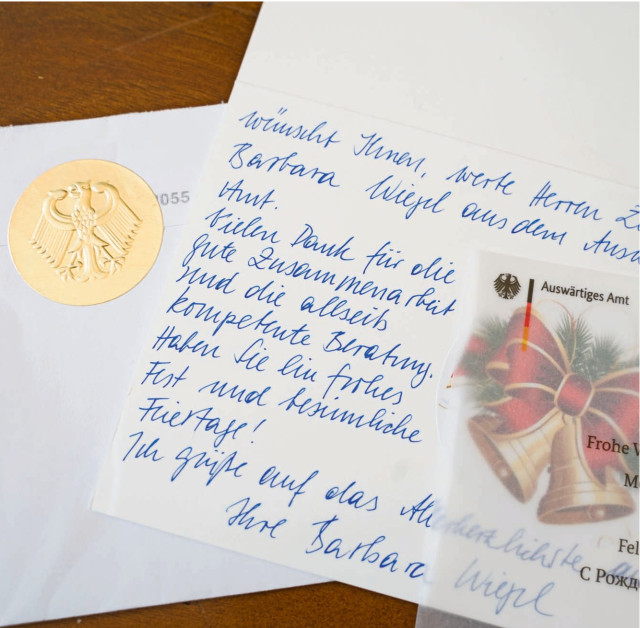 055
wünscht Ihnen, werte Herren
Barbara Wiegel aus dem Ausw
Amt.
Vielen Dank für die
gute Zusammenarbeit
und die allseits
kompetente Beratung.
Haben Sie ein frohes
Fest und besinnliche
Feiertage!
Ich grüße auf das Allerherzlichste
Ihre Barbara Wiegel
Auswärtiges Amt
Frohe W
Me
Fel
С Рожд